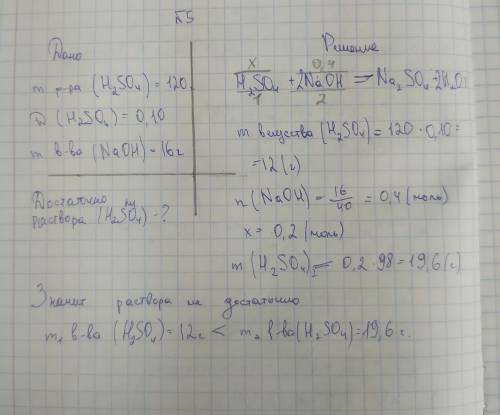 №5
Дано
m р-ра (H₂SO₄) = 120
ω (H₂SO₄) = 0,10
m в-ва (NaOH) - 16г
Достаточно ли
раствора (H₂SO₄) - ?
Решение
x 0,4
H₂SO₄ + 2NaOH = Na₂SO₄ + 2H₂O
1 2
m вещества (H₂SO₄) = 120 · 0,10 =
= 12 (г)
n (NaOH) = 16/40 = 0,4 (моль)
x = 0,2 (моль)
m (H₂SO₄) = 0,2 · 98 = 19,6 (г)
Значит раствора не достаточно
m₁ в-ва (H₂SO₄) = 12г < m₂ в-ва (H₂SO₄) = 19,6 г.